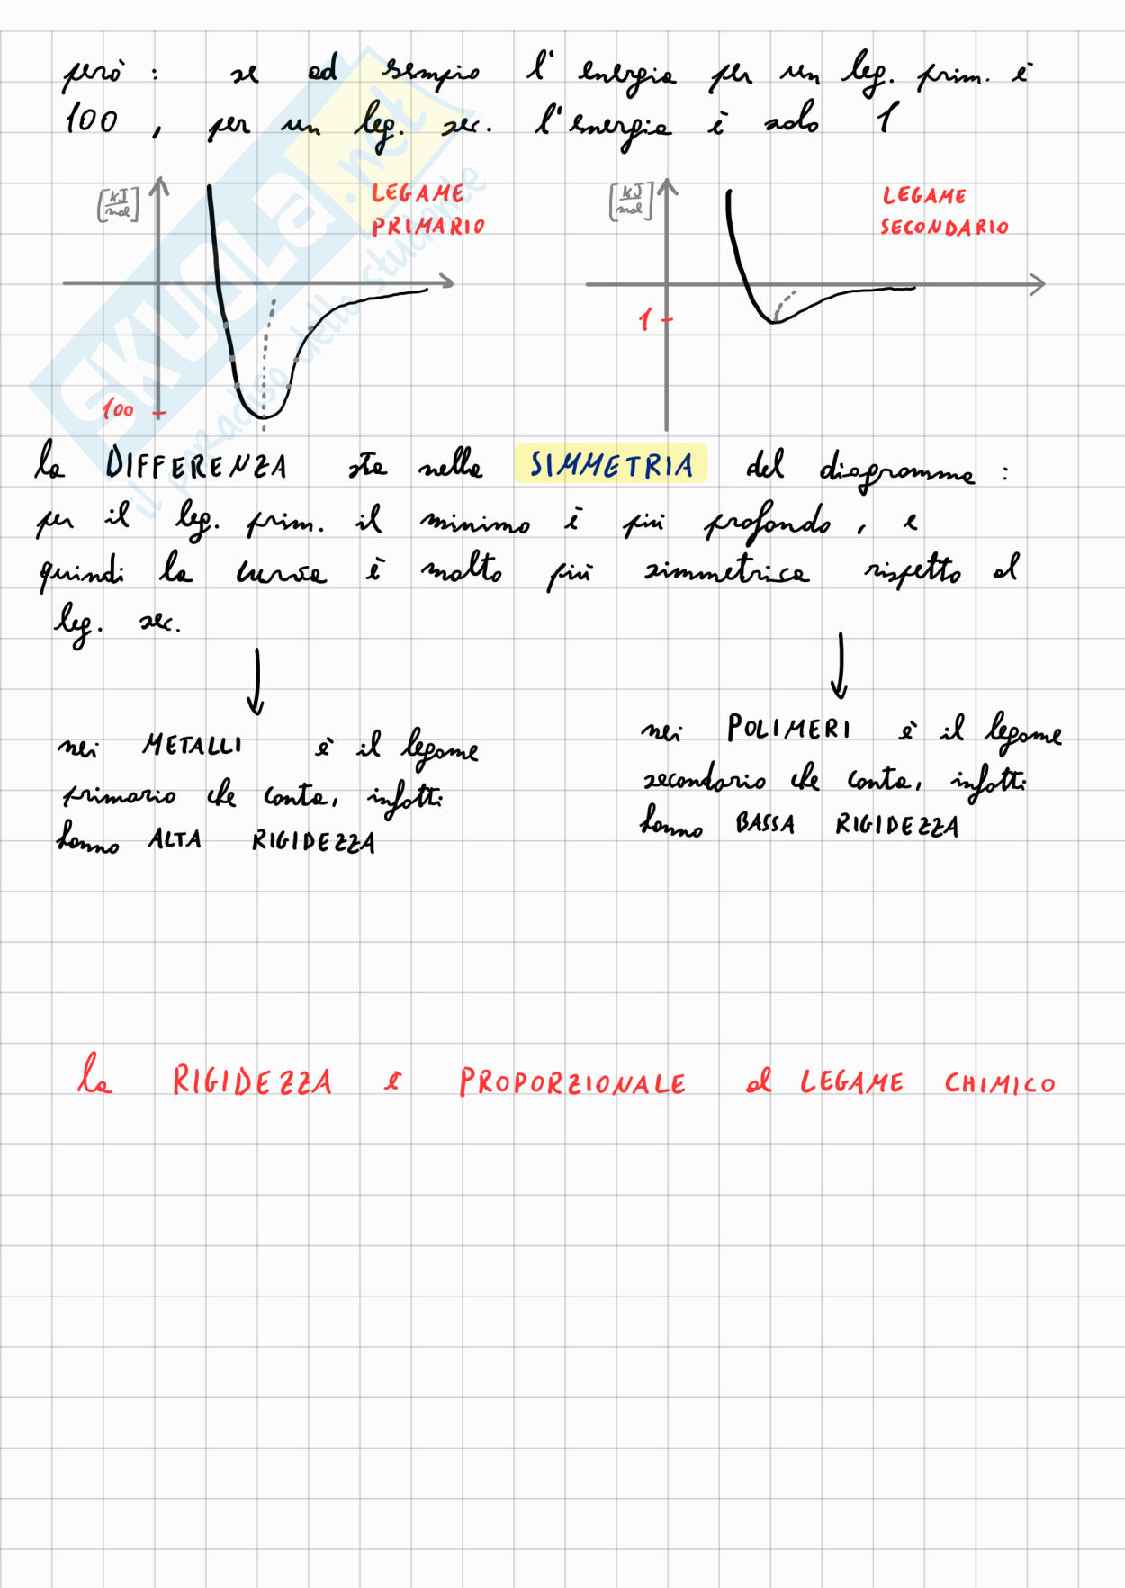 però : se ad esempio l'energia per un leg. prim. è
100 , per un leg. sec. l'energia è solo 1
[kJ/mol]
LEGAME
PRIMARIO
100
[kJ/mol]
LEGAME
SECONDARIO
1
la DIFFERENZA sta nella SIMMETRIA del diagramma :
per il leg. prim. il minimo è più profondo , e
quindi la curva è molto più simmetrica rispetto al
leg. sec.
nei METALLI è il legame
primario che conta, infatti
hanno ALTA RIGIDEZZA
nei POLIMERI è il legame
secondario che conta, infatti
hanno BASSA RIGIDEZZA
la RIGIDEZZA e PROPORZIONALE al LEGAME CHIMICO
SKUOLA.net
il paradiso dello studente